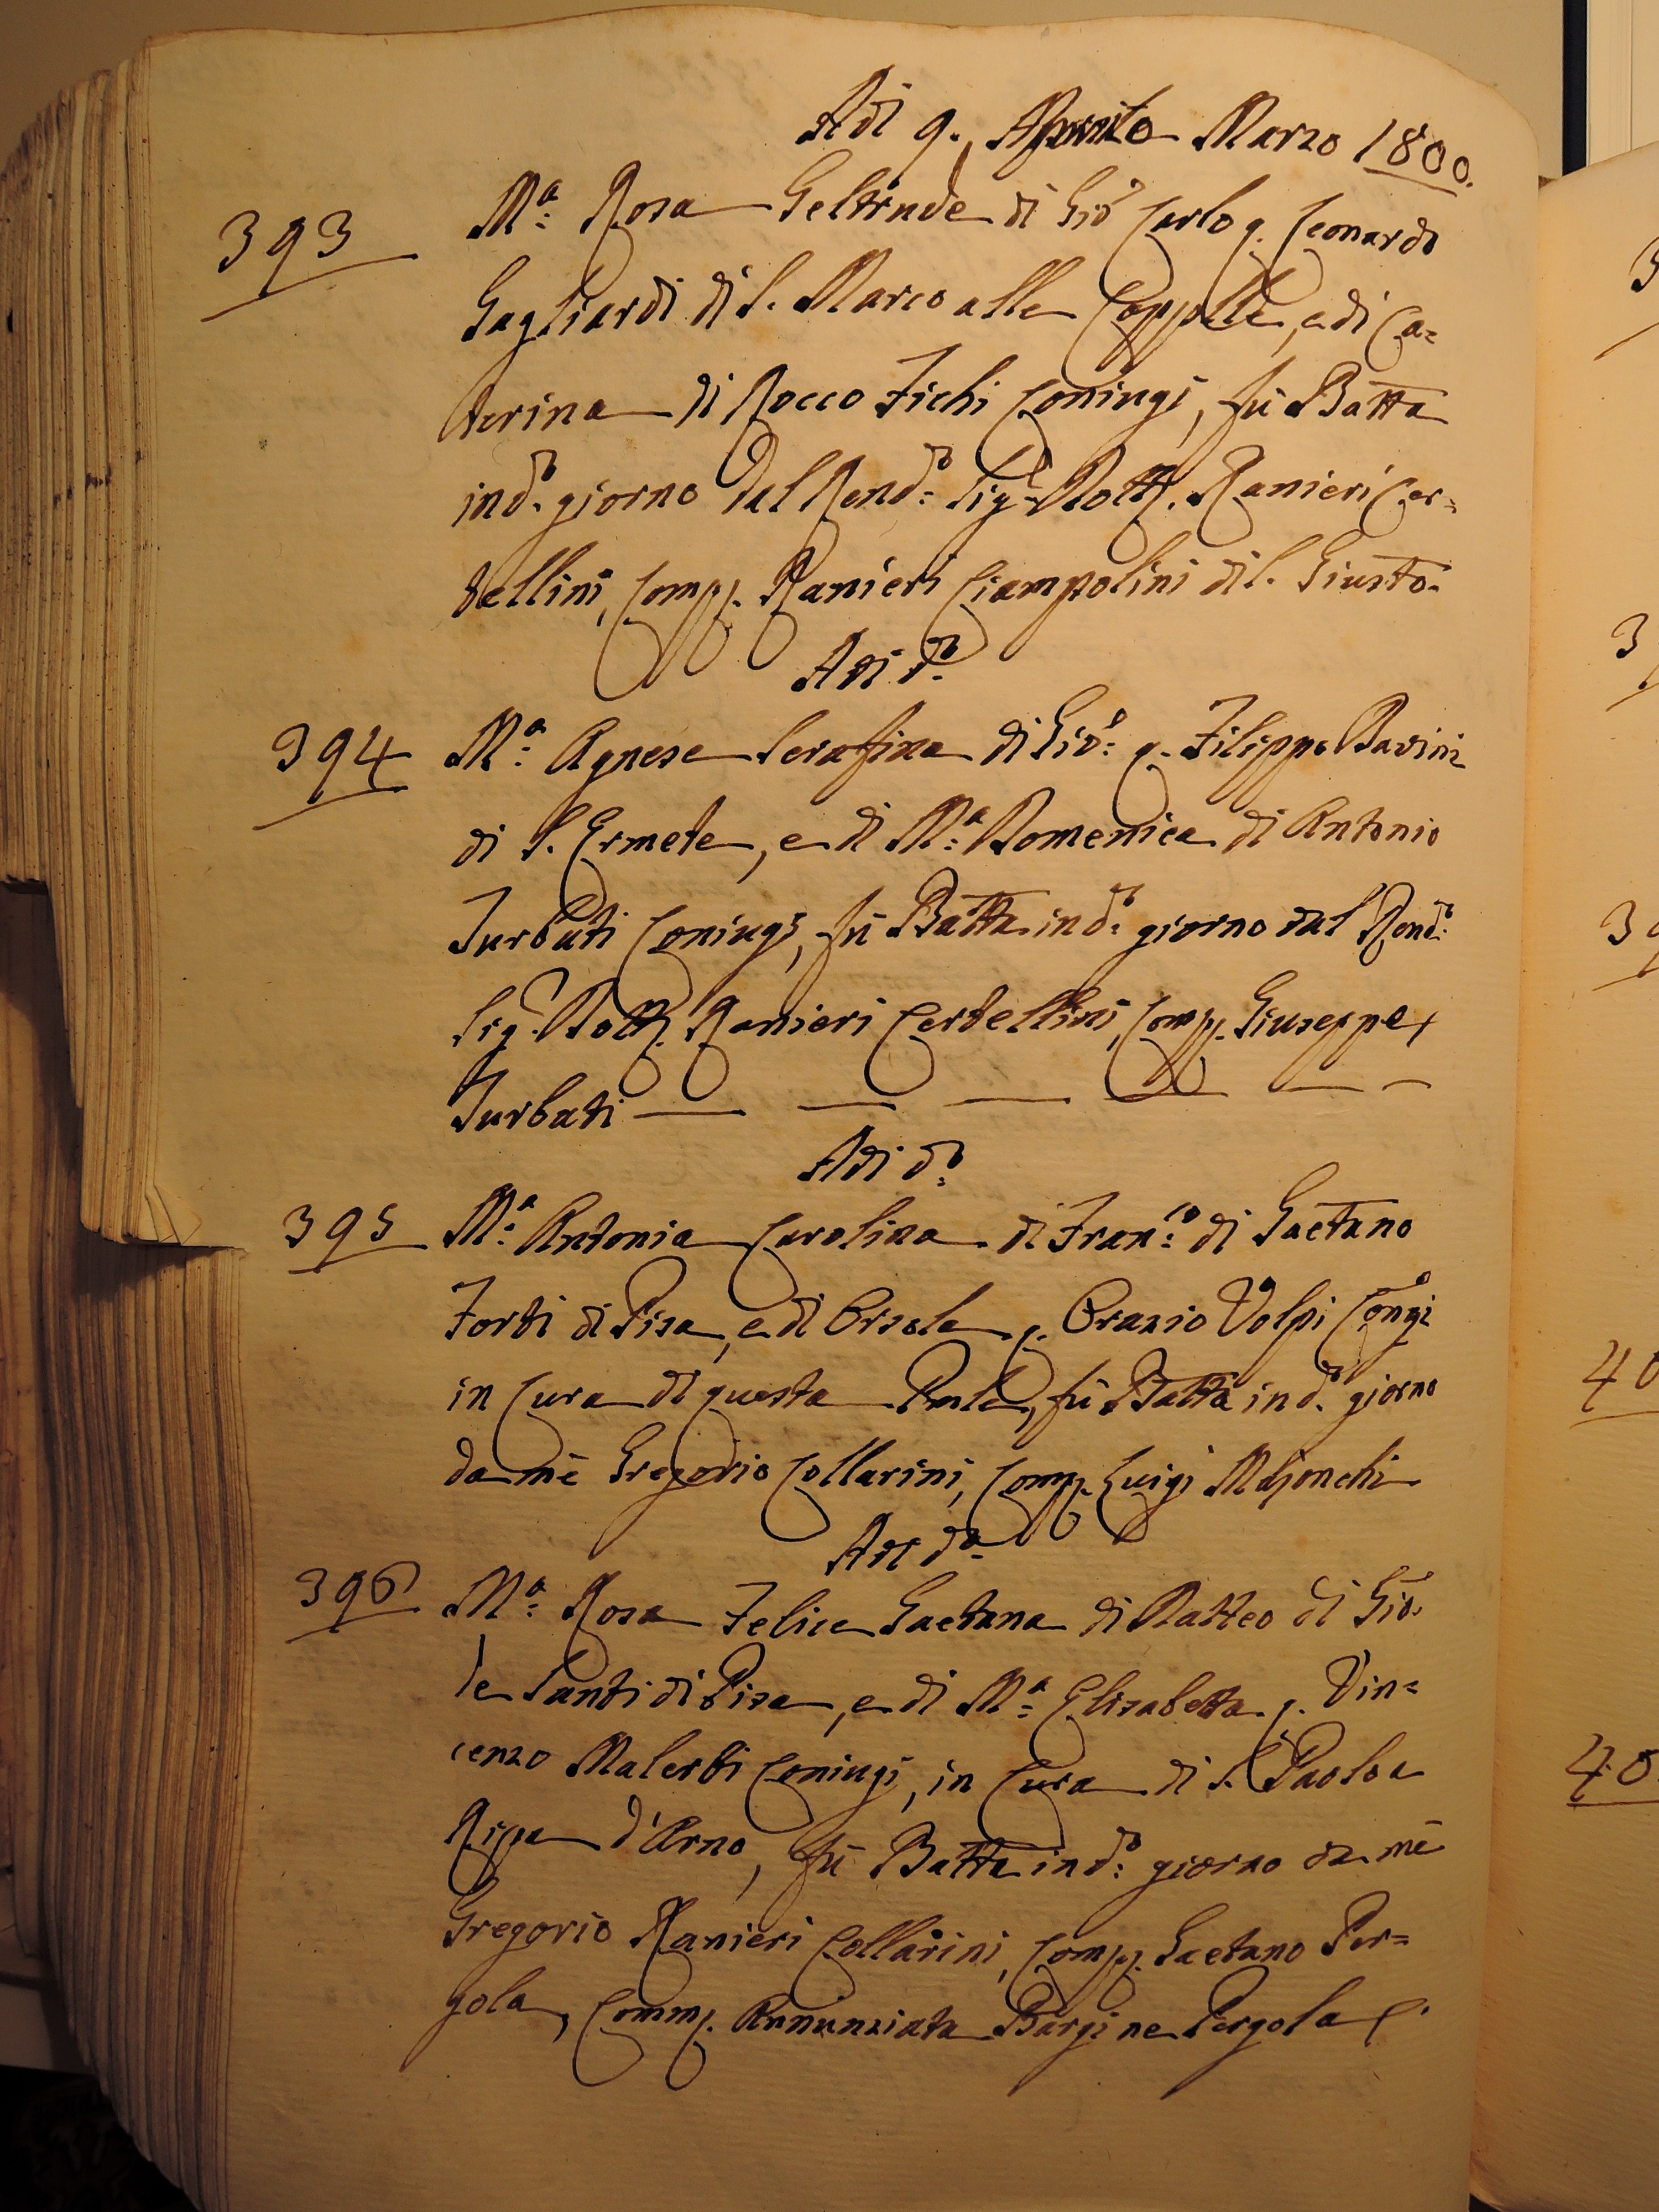 Adì 9. Marzo 1800.
393 Mª: Rosa Geltrude di Gio Carlo q. Leonardo
Gagliardi di S. Marco alle Cappelle, e di Ca=
terina di Rocco Fichi Coniugi, fù Batta
in dº. giorno dal Rendº: Sigr Dott. Ranieri Cer=
bellini, Comp. Ranieri Ciampolini di S. Giusto.
Adì dº.
394 Mª: Agnese Serafina di Gioº: q. Filippo Bavini
di S. Ermete, e di Mª: Domenica di Antonio
Turbati Coniugi, fù Batta in dº: giorno dal Rendº:
Sigr. Dott. Ranieri Cerbellini, Comp. Giuseppe
Turbati — — — — — —
Adì dº:
395 Mª: Antonia Carolina di Franco: di Gaetano
Forti di Pisa, e di Orsola q. Orazio Volpi Congi
in Cura di questa Ple, fù Batta in dº. giorno
da mè Gregorio Collarini, Comp. Luigi
Adì dº.
396 Mª: Rosa Felice Gaetana di Matteo di Gio.
le Santi di Pisa, e di Mª: Elisabetta q. Vin=
cenzo Malerbi Coniugi, in Cura di S. Paolo a
Ripa d'Arno, fù Batta in dº: giorno da mè
Gregorio Ranieri Collarini, Comp. Gaetano Per=
gola, Comm. Annunziata Bargi ne Pergola